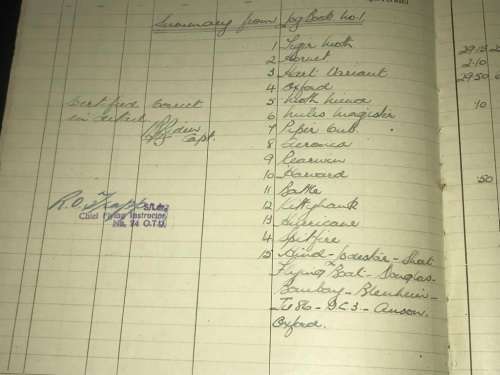 Summary from Log Book No.1.
1 Tiger Moth 29.15
2 Hornet 2.10
3 Hart Variant 29.50
4 Oxford
5 Moth Minor 10
6 Miles Magister
7 Piper Cub.
8 Aeronca
9 Rearwin
10 Harvard .50
11 Battle
12 Kittyhawk
13 Hurricane
14 Spitfire
15 Hind - - Short
Flying Boat - Douglas -
Bombay - Blenheim -
JU 86 - DC3 - Anson.
Oxford.
Certified Correct
Capt.
R.O.
S/Ldr
Chief Flying Instructor
No. 74 O.T.U.